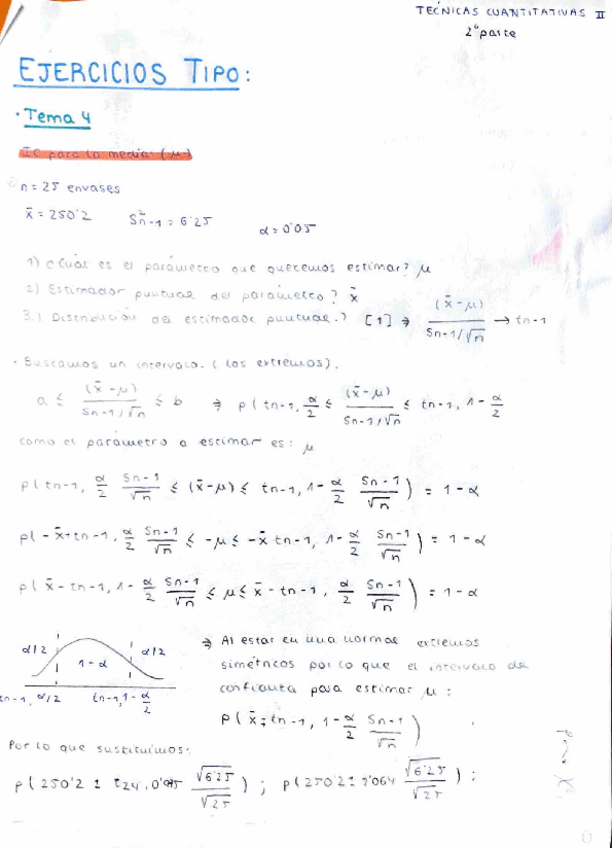 TÉCNICAS CUANTITATIVAS II
2ª parte
EJERCICIOS TIPO:
· Tema 4
IC para la media: (μ)
n = 25 envases
x̄ = 250'2 S²n-1 = 6'25 α = 0'05
1) ¿Cuál es el parámetro que queremos estimar? μ
2) Estimador puntual del parámetro? x̄
3.) Distribución del estimador puntual.? [1] ⇒ (x̄-μ) / Sn-1/√n → tn-1
· Buscamos un intervalo. (los extremos).
a ≤ (x̄-μ) / Sn-1/√n ≤ b ⇒ p( tn-1, α/2 ≤ (x̄-μ) / Sn-1/√n ≤ tn-1, 1-α/2
como el parámetro a estimar es: μ
p( tn-1, α/2 Sn-1/√n ≤ (x̄-μ) ≤ tn-1, 1-α/2 Sn-1/√n ) = 1-α
p( -x̄+tn-1, α/2 Sn-1/√n ≤ -μ ≤ -x̄ tn-1, 1-α/2 Sn-1/√n ) = 1-α
p( x̄-tn-1, 1-α/2 Sn-1/√n ≤ μ ≤ x̄-tn-1, α/2 Sn-1/√n ) = 1-α
α/2 1-α α/2
tn-1, α/2 tn-1, 1-α/2
⇒ Al estar en una normal extremos
simétricos por lo que el intervalo de
confianza para estimar μ:
p( x̄ ∓ tn-1, 1-α/2 Sn-1/√n )
Por lo que sustituimos:
p( 250'2 ± t24, √6'25/√25 ) ; p( 250'2 ± 2'064 √6'25/√25 ) ;